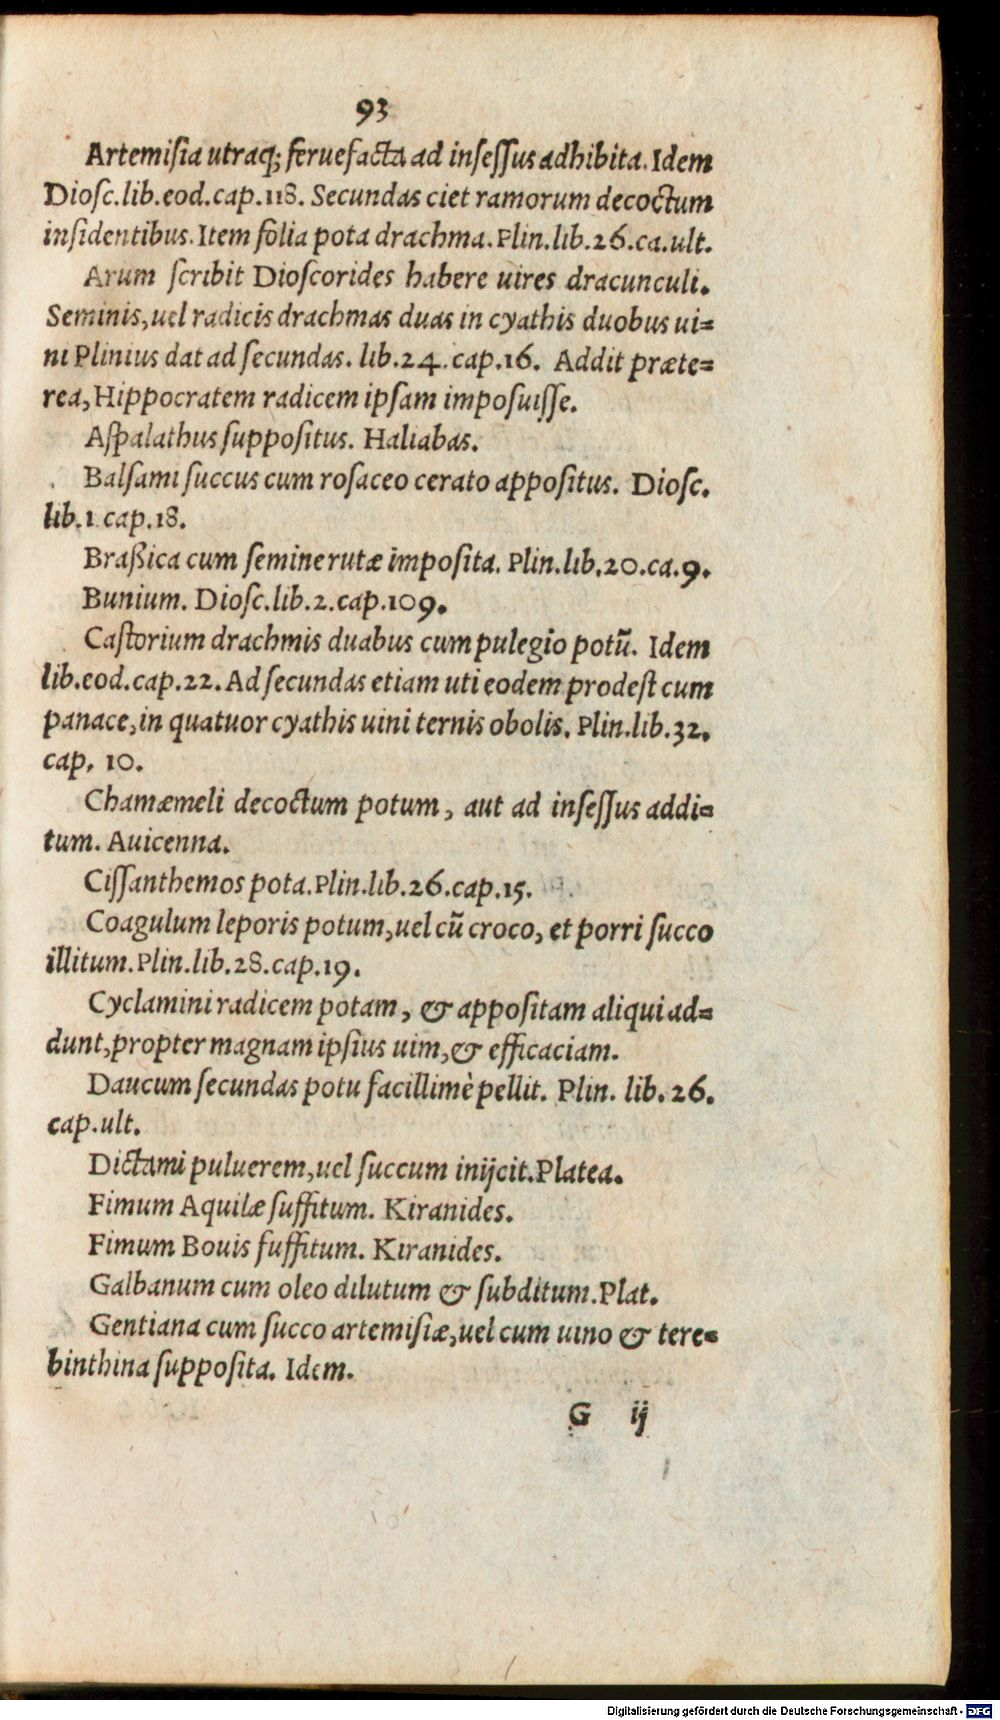 93
Artemiſia utraq; feruefacta ad inſeſſus adhibita. Idem
Dioſc.lib.eod.cap.118. Secundas ciet ramorum decoctum
inſidentibus. Item folia pota drachma. Plin.lib.26.ca.ult.
Arum ſcribit Dioſcorides habere uires dracunculi.
Seminis, uel radicis drachmas duas in cyathis duobus ui=
ni Plinius dat ad ſecundas. lib.24.cap.16. Addit præte=
rea, Hippocratem radicem ipſam impoſuiſſe.
Aſpalathus ſuppoſitus. Haliabas.
Balſami ſuccus cum roſaceo cerato appoſitus. Dioſc.
lib.1.cap.18.
Braßica cum ſemine rutæ impoſita. Plin.lib.20.ca.9.
Bunium. Dioſc.lib.2.cap.109.
Caſtorium drachmis duabus cum pulegio potũ. Idem
lib.eod.cap.22. Ad ſecundas etiam uti eodem prodeſt cum
panace, in quatuor cyathis uini ternis obolis. Plin.lib.32.
cap. 10.
Chamæmeli decoctum potum, aut ad inſeſſus addi=
tum. Auicenna.
Ciſſanthemos pota. Plin.lib.26.cap.15.
Coagulum leporis potum, uel cũ croco, et porri ſucco
illitum. Plin.lib.28.cap.19.
Cyclamini radicem potam, & appoſitam aliqui ad=
dunt, propter magnam ipſius uim, & efficaciam.
Daucum ſecundas potu facillimè pellit. Plin. lib. 26.
cap.ult.
Dictami puluerem, uel ſuccum inijcit. Platea.
Fimum Aquilæ ſuffitum. Kiranides.
Fimum Bouis fuffitum. Kiranides.
Galbanum cum oleo dilutum & ſubditum. Plat.
Gentiana cum ſucco artemiſiæ, uel cum uino & tere=
binthina ſuppoſita. Idem.
G ij
Digitalisierung gefördert durch die Deutsche Forschungsgemeinschaft - DFG